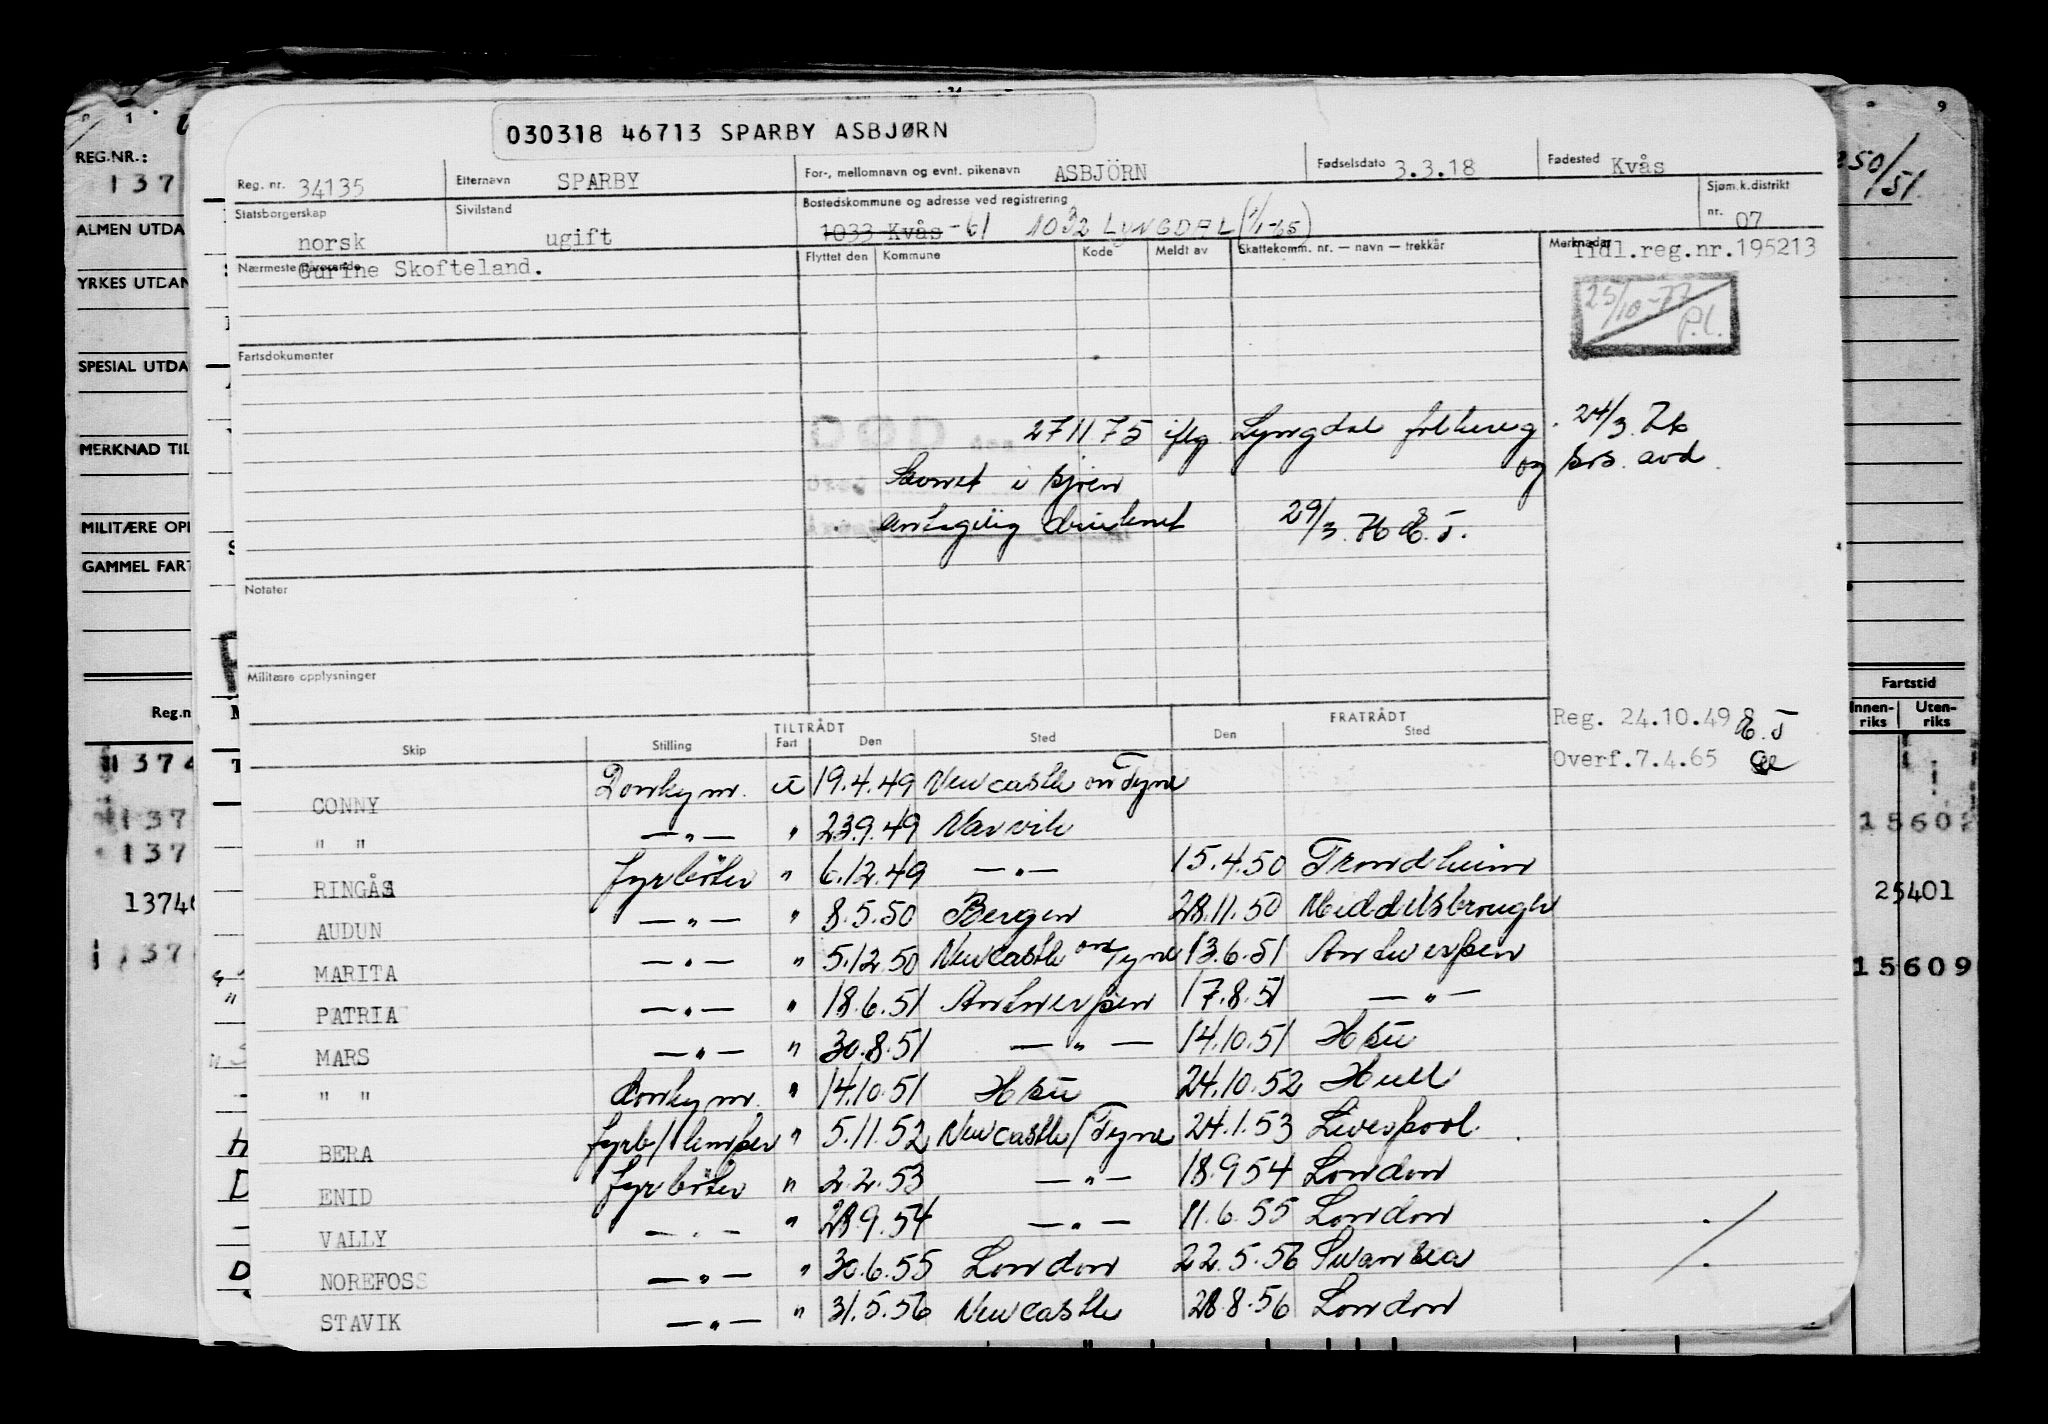 030318 46713 SPARBY ASBJØRN
Reg. nr. 34135 Etternavn SPARBY For-, mellomnavn og evnt. pikenavn ASBJÖRN Fødselsdato 3.3.18 Fødested Kvås
Statsborgerskap norsk Sivilstand ugift Bostedskommune og adresse ved registrering 1033 Kvås -61 1032 LYNGDAL (1/1-65) Sjøm.k.distrikt nr. 07
Nærmeste pårørende Gurine Skofteland. Flyttet den Kommune Kode Meldt av Skattekomm. nr. — navn — trekkår Merknader Tidl.reg.nr.195213
25/10-77 P.l.
Fartsdokumenter
27 11 75 iflg Lyngdal folkereg. 24/3.76
og sos. avd.
Savnet i sjøen
antagelig druknet 29/3.76 E.T.
Notater
Militære opplysninger
Reg. 24.10.49 E.T
Overf.7.4.65
TILTRÅDT FRATRÅDT
Skip Stilling Fart Den Sted Den Sted
CONNY Donkeym. u 19.4.49 Newcastle on Tyne
" " —„— " 23.9.49 Narvik
RINGÅS fyrbøter " 6.12.49 —„— 15.4.50 Trondheim
AUDUN —„— " 8.5.50 Bergen 28.11.50 Middelsbrough
MARITA —„— " 5.12.50 Newcastle on Tyne 13.6.51 Antwerpen
PATRIA —„— " 18.6.51 Antwerpen 17.8.51 —„—
MARS —„— " 30.8.51 —„— 14.10.51 Hsu
" " donkeym. " 14.10.51 Hsu 24.10.52 Hull
BERA fyrb/lemper " 5.11.52 Newcastle/Tyne 24.1.53 Liverpool.
ENID fyrbøter " 2.2.53 —„— 18.9.54 London
VALLY —„— " 28.9.54 —„— 11.6.55 London
NOREFOSS —„— " 30.6.55 London 22.5.56 Swansea
STAVIK —„— " 31.5.56 Newcastle 28.8.56 London
REG.NR.:
137
ALMEN UTDA
YRKES UTDAN
SPESIAL UTDA
MERKNAD TIL
MILITÆRE OPP
GAMMEL FART
Reg.n
1374
137
137
1374
137
9
250/51
Fartstid
Innen-riks Uten-riks
15602
25401
15609